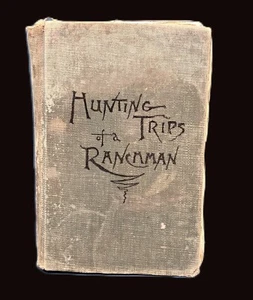 HUNTING
TRIPS
of a
RANCHMAN